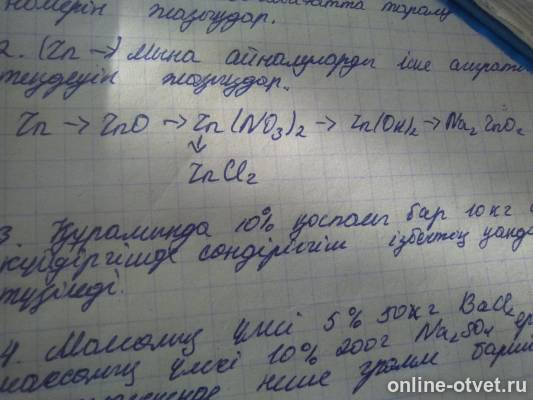 номерін жазыңдар.
2. (Zn →) Мына айналуларды іске асыратын
теңдеуін жазыңдар.
Zn → ZnO → Zn(NO3)2 → Zn(OH)2 → Na2ZnO2
↓
ZnCl2
3. Құрамында 10% қоспасы бар 10 кг
сөндірілген ізбестің қанда
түзіледі.
4. Массалық үлесі 5% 50 кг BaCl2
массалық үлесі 10% 200г Na2SO4
неше грамм барий
online-otvet.ru